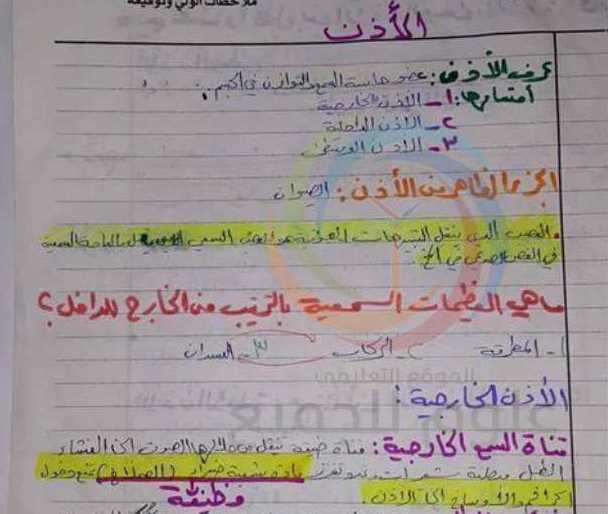 ملاحظات الولي وتوقيعه
الأذن
عرف الأذن: عضو حاسة السمع والتوازن في الجسم.
أقسامها: 1- الأذن الخارجية
2- الأذن الداخلة
3- الأذن الوسطى
الجزء الظاهر من الأذن: الصيوان
العصب الذي ينقل التنبيهات العصبية هو العصب السمعي بالباحة السمعية
في الفص الصدغي في المخ.
ماهي العظيمات السمعية بالترتيب من الخارج للداخل؟
1- المطرقة 2- الركاب 3- السندان
الموقع التعليمي
الأذن الخارجية:
قناة السمع الخارجية: قناة ضيقة تنقل من خلالها الصوت إلى الغشاء
الطبل مبطنة بشعيرات تفرز مادة شمعية صفراء (الصملاخ) تمنع دخول
والأوساخ إلى الأذن.
وظيفة